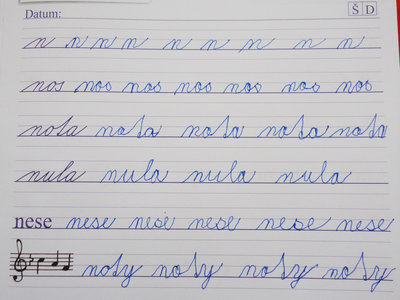 Datum: Š D
n n n n n n n n n
nos nos nos nos nos nos nos
nota nota nota nota nota
nula nula nula nula
nese nese nese nese nese nese
noty noty noty noty